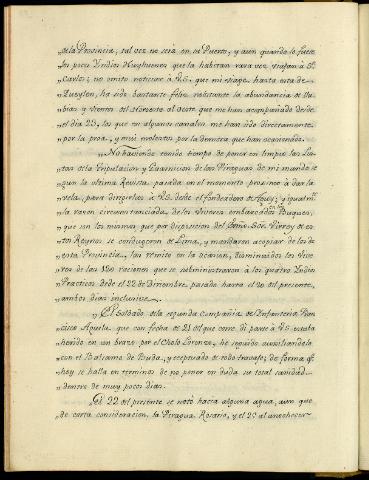 „ de la Provincia, tal vez no seria en su Puerto, y aun quando lo fuese
„ los pocos Yndios Huyhuenes que la habitan rara vez viajan à Sn.
„ Carlos; no omito noticiar à VS. que mi viage hasta esta de
„ Queylen, ha sido bastante feliz no obstante la abundancia de llu-
„ bias y vientos del Noroeste al Oeste que me han acompañado desde
„ el dia 23, los que en algunos canales me han sido directamente
„ por la proa, y muy molestos por la demora que han ocasionado.
„ No habiendo tenido tiempo de poner en limpio las Lis-
„ tas de la Tripulacion y Guarnicion de las Piraguas de mi mando se-
„ gun la ultima Revista pasada en el momento proximo à dar la
„ vela, para dirigirlas à VS. desde el fondeadero de Aguy; y igualmte.
„ la razon circunstanciada de los Viveres embarcados en los Buques,
„ que son los mismos que por disposicion del Exmo. Sor. Virrey de es-
„ tos Reynos se condugeron de Lima, y mandaron acopiar de los de
„ esta Provincia, las remito en la ocasion, disminuidos los Vive-
„ res de las 120 raciones que se subministraron à los quatro Yndios
„ Practicos desde el 22 de Diciembre pasado hasta el 20 del presente,
„ ambos dias inclusive.
„ El Soldado de la segunda Compañia de Infanteria Fran-
„ cisco Aguela que con fecha de 21 del que corre di parte à VS. estaba
„ herido en un brazo por el Cholo Lorenzo, he seguido auxiliandola
„ con el Balsamo de Buda, y exceptuado de todo travajo; de forma qe.
„ hoy se halla en terminos de no poner en duda su total sanidad
„ dentro de muy pocos dias.
„ El 22 del presente se notó hacia alguna agua, aun que
„ de corta consideracion la Piragua Rosario, y el 25 al anochecer